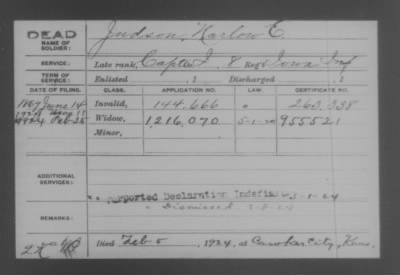 DEAD
NAME OF SOLDIER:
Judson, Harlow E.
SERVICE: Late rank, Capt Co I, 8 Reg't Iowa Inf
TERM OF SERVICE: Enlisted , 1 Discharged , 1
DATE OF FILING. CLASS. APPLICATION NO. LAW. CERTIFICATE NO.
June 14 Invalid, 144,666 263,338
1924 Feb 25 Widow, 1,216,070 5-1-20 955521
Minor,
ADDITIONAL SERVICES:
Purported Declaration Indefinite 3-1-24
Dismissed
REMARKS:
Died Feb 5, 1924, at Cawker City, Kans.